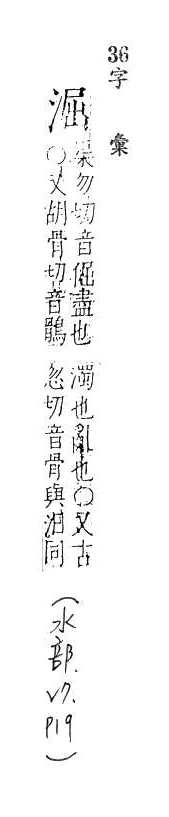 36字彙
淈
渠勿切音倔盡也
○又胡骨切音鶻
濁也亂也○又古
忽切音骨與汩同
(水部.V7.P19)